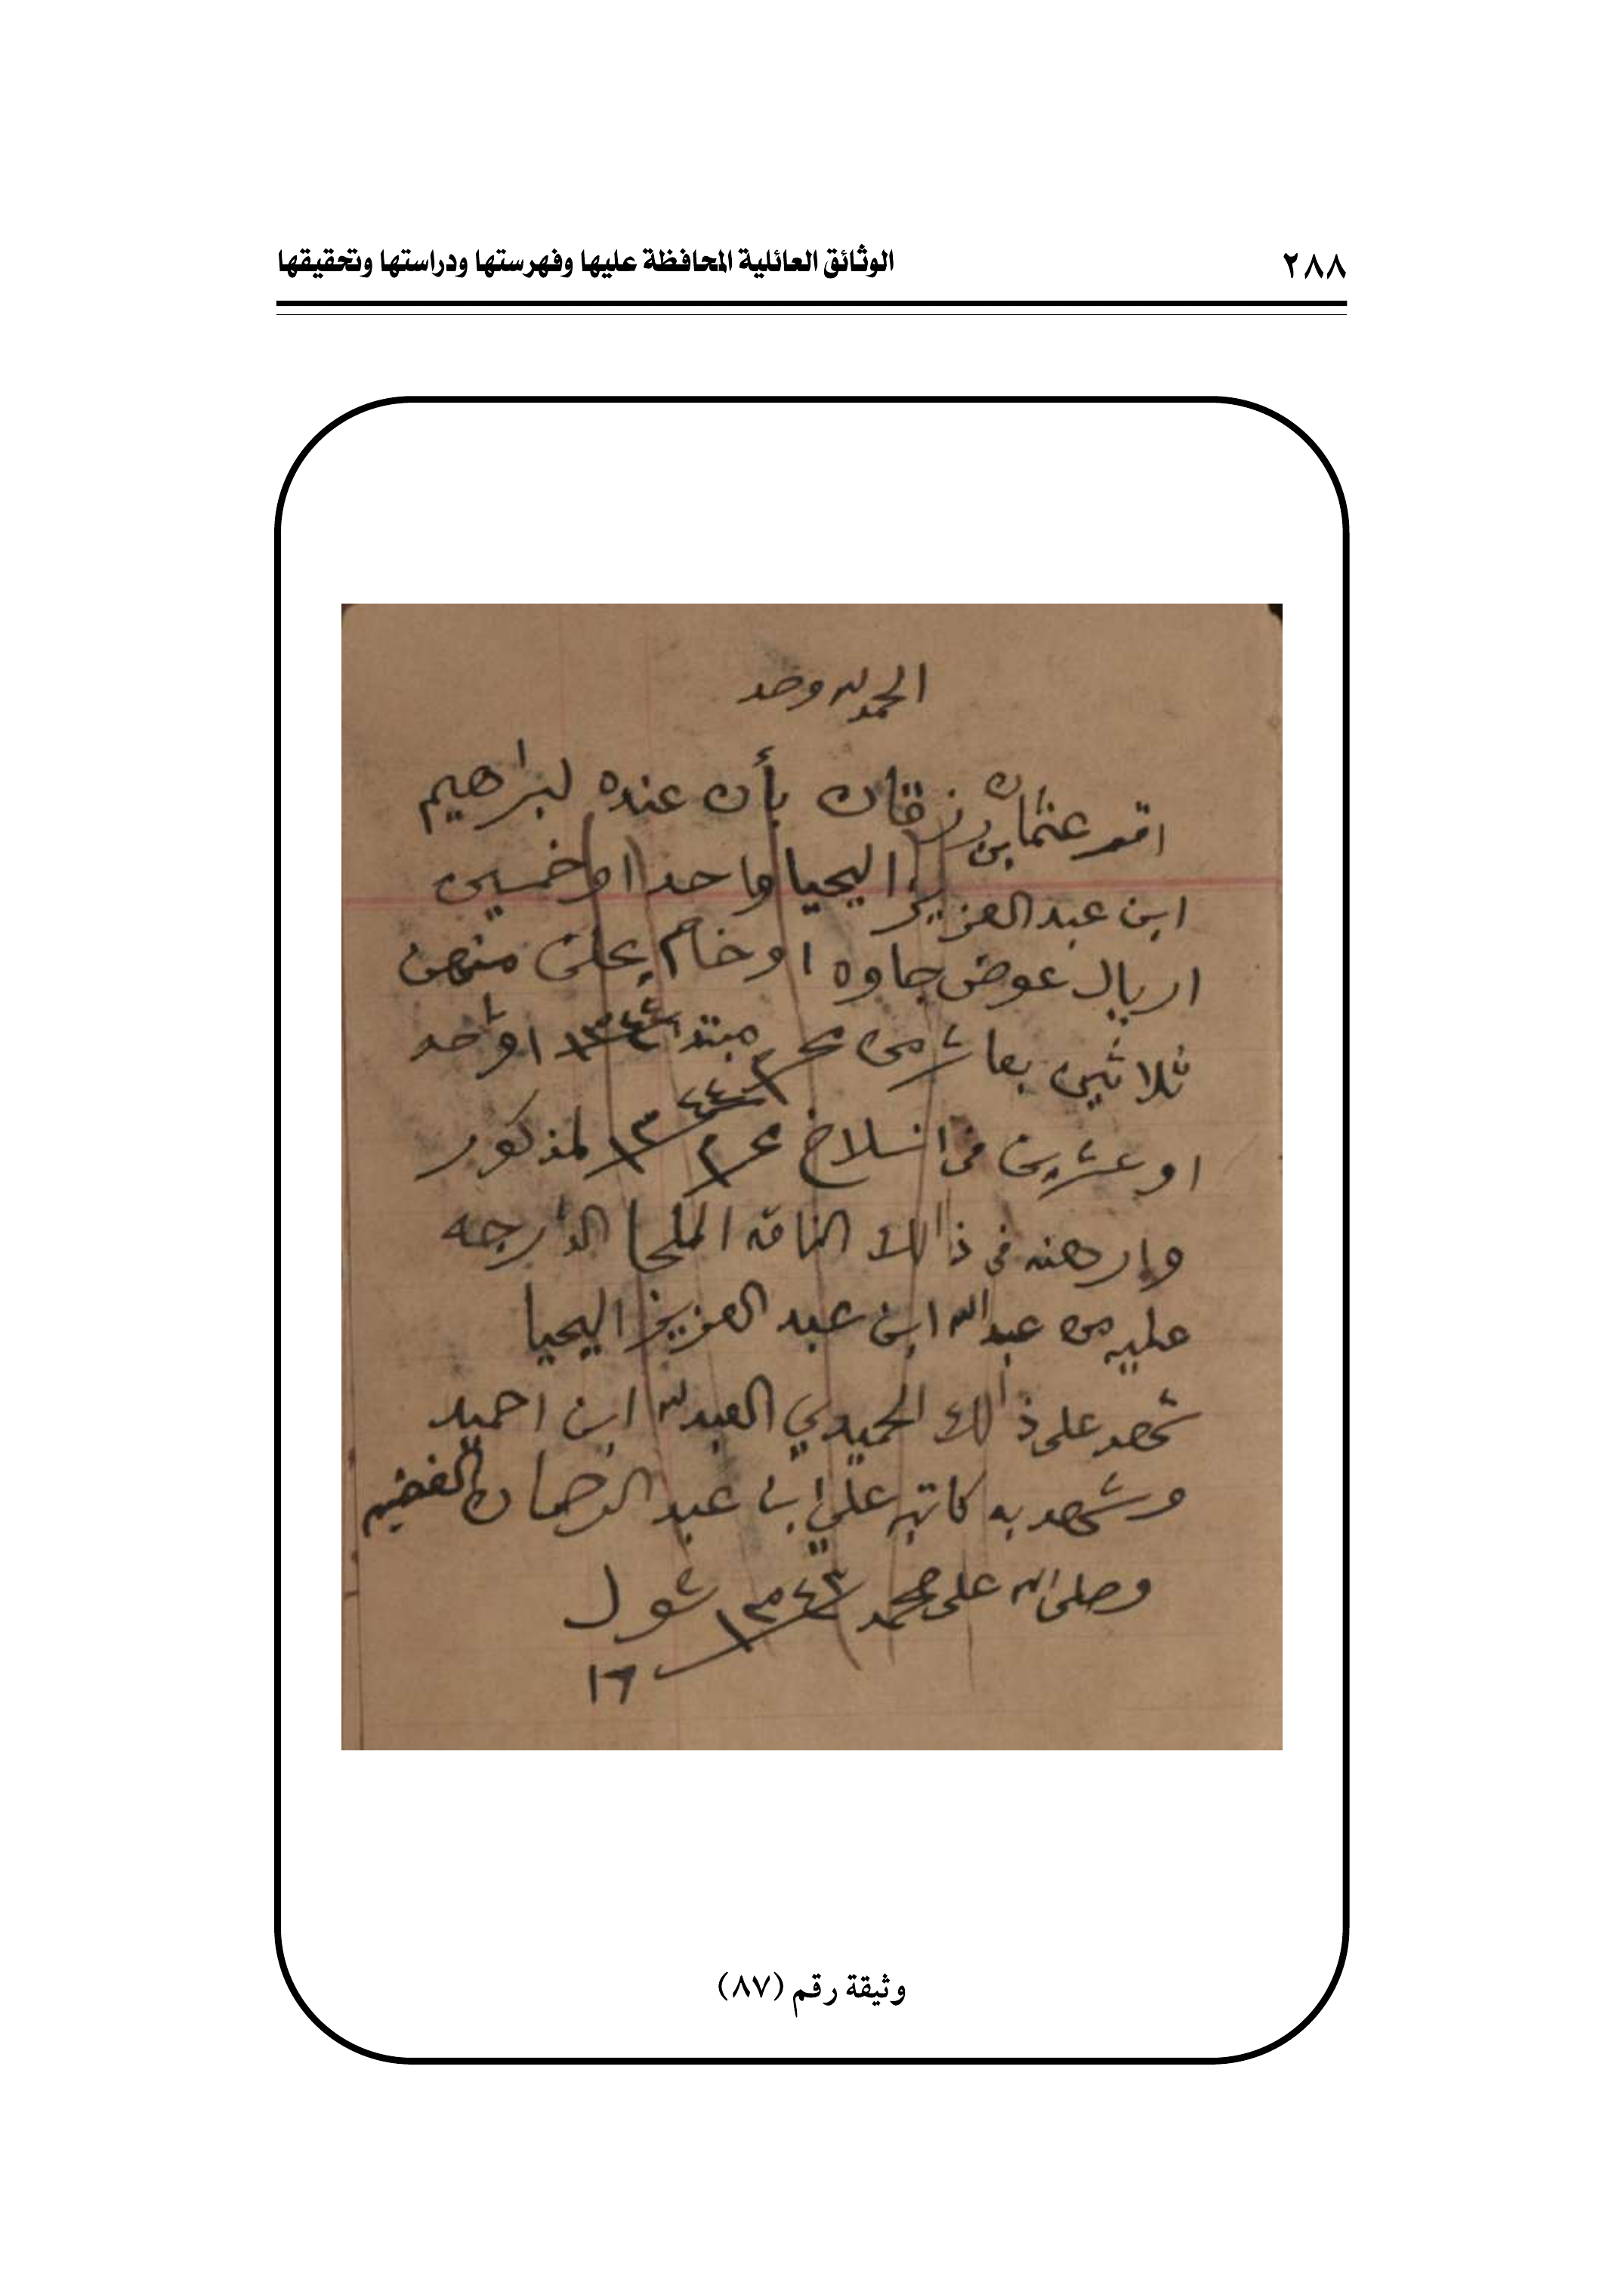 ٢٨٨
الوثائق العائلية المحافظة عليها وفهرستها ودراستها وتحقيقها
الحمد لله وحد
اقر عثمان بن زرقان بأن عنده لبراهيم
ابن عبد العزيز اليحيا واحد او خمسين
اريال عوض جاوه او خام يحلن منهن
ثلاثين بعاشر من محرم مبتدا ١٣٤٤ اوحد
او عشرين في انسلاخ محرم ١٣٤٤ لمذكور
وارهنه في ذالك الناقه الملحا الدارجه
عليه من عبد الله ابن عبد العزيز اليحيا
شهد على ذالك الحميدي العبد لله ابن احميد
وشهد به كاتبه علي ابن عبد الرحمان الغضيم
وصلى الله على محمد ١٣٤٣ شول
١٦
وثيقة رقم (٨٧)